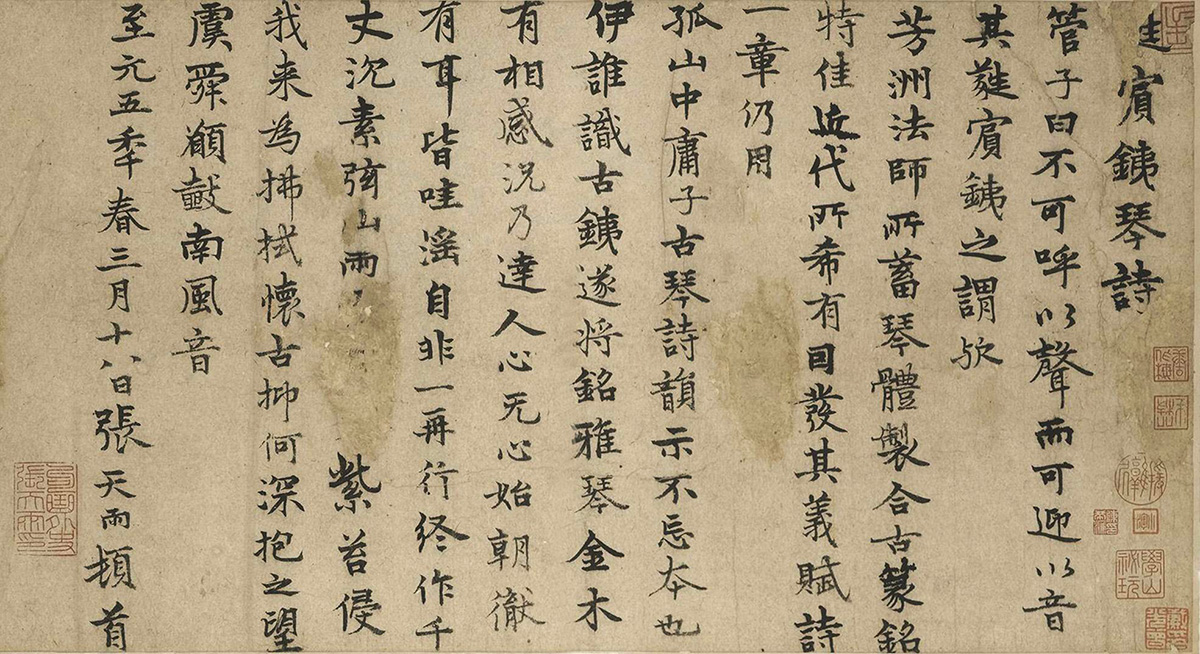 賓銕琴詩
管子曰不可呼以聲而可迎以音
其蕤賓銕之謂歟
芳洲法師所蓄琴體製合古篆銘
特佳近代所希有因發其義賦詩
一章仍用
孤山中庸子古琴詩韻示不忘本也
伊誰識古銕遂將銘雅琴金木
有相感況乃達人心无心始朝徹
有耳皆哇滛自非一再行終作千
丈沉素弦山雨紫苔侵
我来為拂拭懷古抑何深抱之望
虞舜願鼓南風音
至元五年春三月十八日張天雨頓首